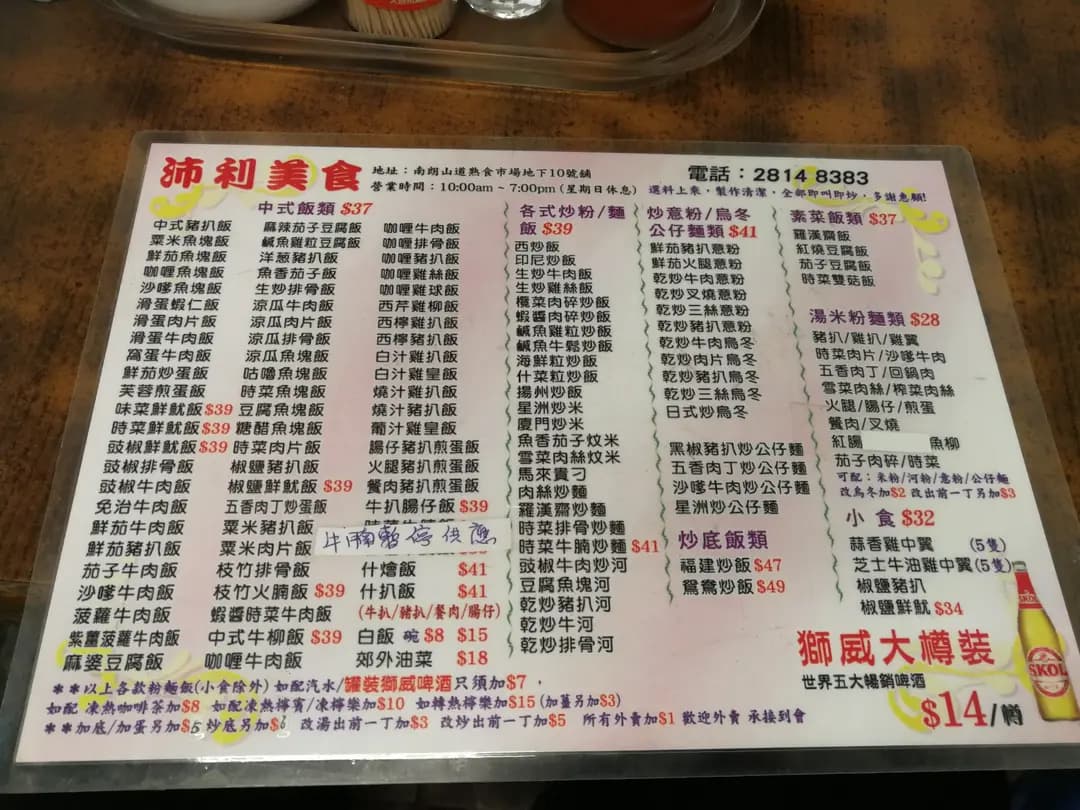 沛利美食
地址：南朗山道熟食市場地下10號舖
營業時間：10:00am ~ 7:00pm (星期日休息)
電話：2814 8383
選料上乘，製作清潔，全部即叫即炒，多謝惠顧!
中式飯類 $37
中式豬扒飯
粟米魚塊飯
鮮茄魚塊飯
咖喱魚塊飯
沙嗲魚塊飯
滑蛋蝦仁飯
滑蛋肉片飯
滑蛋牛肉飯
窩蛋牛肉飯
鮮茄炒蛋飯
芙蓉煎蛋飯
味菜鮮魷飯 $39
時菜鮮魷飯 $39
豉椒鮮魷飯 $39
豉椒排骨飯
豉椒牛肉飯
免治牛肉飯
鮮茄牛肉飯
鮮茄豬扒飯
茄子牛肉飯
沙嗲牛肉飯
菠蘿牛肉飯
紫薑菠蘿牛肉飯
麻婆豆腐飯
麻辣茄子豆腐飯
鹹魚雞粒豆腐飯
洋蔥豬扒飯
魚香茄子飯
生炒排骨飯
涼瓜牛肉飯
涼瓜肉片飯
涼瓜排骨飯
涼瓜魚塊飯
咕嚕魚塊飯
時菜魚塊飯
豆腐魚塊飯
糖醋魚塊飯
時菜肉片飯
椒鹽豬扒飯
椒鹽鮮魷飯 $39
五香肉丁炒蛋飯
粟米豬扒飯
粟米肉片飯
枝竹排骨飯
枝竹火腩飯 $39
蝦醬時菜牛肉飯
中式牛柳飯 $39
咖喱牛肉飯
咖喱牛肉飯
咖喱排骨飯
咖喱豬扒飯
咖喱雞絲飯
咖喱雞球飯
西芹雞柳飯
西檸雞扒飯
西檸豬扒飯
白汁雞扒飯
白汁雞皇飯
燒汁雞扒飯
燒汁豬扒飯
葡汁雞皇飯
腸仔豬扒煎蛋飯
火腿豬扒煎蛋飯
餐肉豬扒煎蛋飯
牛扒腸仔飯 $39
牛腩暫停供應
什燴飯 $41
什扒飯 $41
(牛扒/豬扒/餐肉/腸仔)
白飯 碗 $8 $15
郊外油菜 $18
各式炒粉/麵
飯 $39
西炒飯
印尼炒飯
生炒牛肉飯
生炒雞絲飯
欖菜肉碎炒飯
蝦醬肉碎炒飯
鹹魚雞粒炒飯
鹹魚牛鬆炒飯
海鮮粒炒飯
什菜粒炒飯
揚州炒飯
星洲炒米
廈門炒米
魚香茄子炆米
雪菜肉絲炆米
馬來貴刁
肉絲炒麵
羅漢齋炒麵
時菜排骨炒麵
時菜牛腩炒麵 $41
豉椒牛肉炒河
豆腐魚塊河
乾炒豬扒河
乾炒牛河
乾炒排骨河
炒意粉/烏冬
公仔麵類 $41
鮮茄豬扒意粉
鮮茄火腿意粉
乾炒牛肉意粉
乾炒叉燒意粉
乾炒三絲意粉
乾炒豬扒意粉
乾炒牛肉烏冬
乾炒肉片烏冬
乾炒豬扒烏冬
乾炒三絲烏冬
日式炒烏冬
黑椒豬扒炒公仔麵
五香肉丁炒公仔麵
沙嗲牛肉炒公仔麵
星洲炒公仔麵
炒底飯類
福建炒飯 $47
鴛鴦炒飯 $49
素菜飯類 $37
羅漢齋飯
紅燒豆腐飯
茄子豆腐飯
時菜雙菇飯
湯米粉麵類 $28
豬扒/雞扒/雞翼
時菜肉片/沙嗲牛肉
五香肉丁/回鍋肉
雪菜肉絲/榨菜肉絲
火腿/腸仔/煎蛋
餐肉/叉燒
紅腸 魚柳
茄子肉碎/時菜
可配：米粉/河粉/意粉/公仔麵
改烏冬加$2 改出前一丁另加$3
小食 $32
蒜香雞中翼 (5隻)
芝士牛油雞中翼(5隻)
椒鹽豬扒
椒鹽鮮魷 $34
獅威大樽裝
世界五大暢銷啤酒
$14/樽
SKOL
**以上各款粉麵飯(小食除外) 如配汽水/罐裝獅威啤酒只須加$7，
如配 凍熱咖啡茶加$8 如配凍熱檸賓/凍檸樂加$10 如轉熱檸樂加$15 (加薑加$3)
**加底/加蛋另加$5 炒底另加$6 改湯出前一丁加$3 改炒出前一丁加$5 所有外賣加$1 歡迎外賣 承接到會